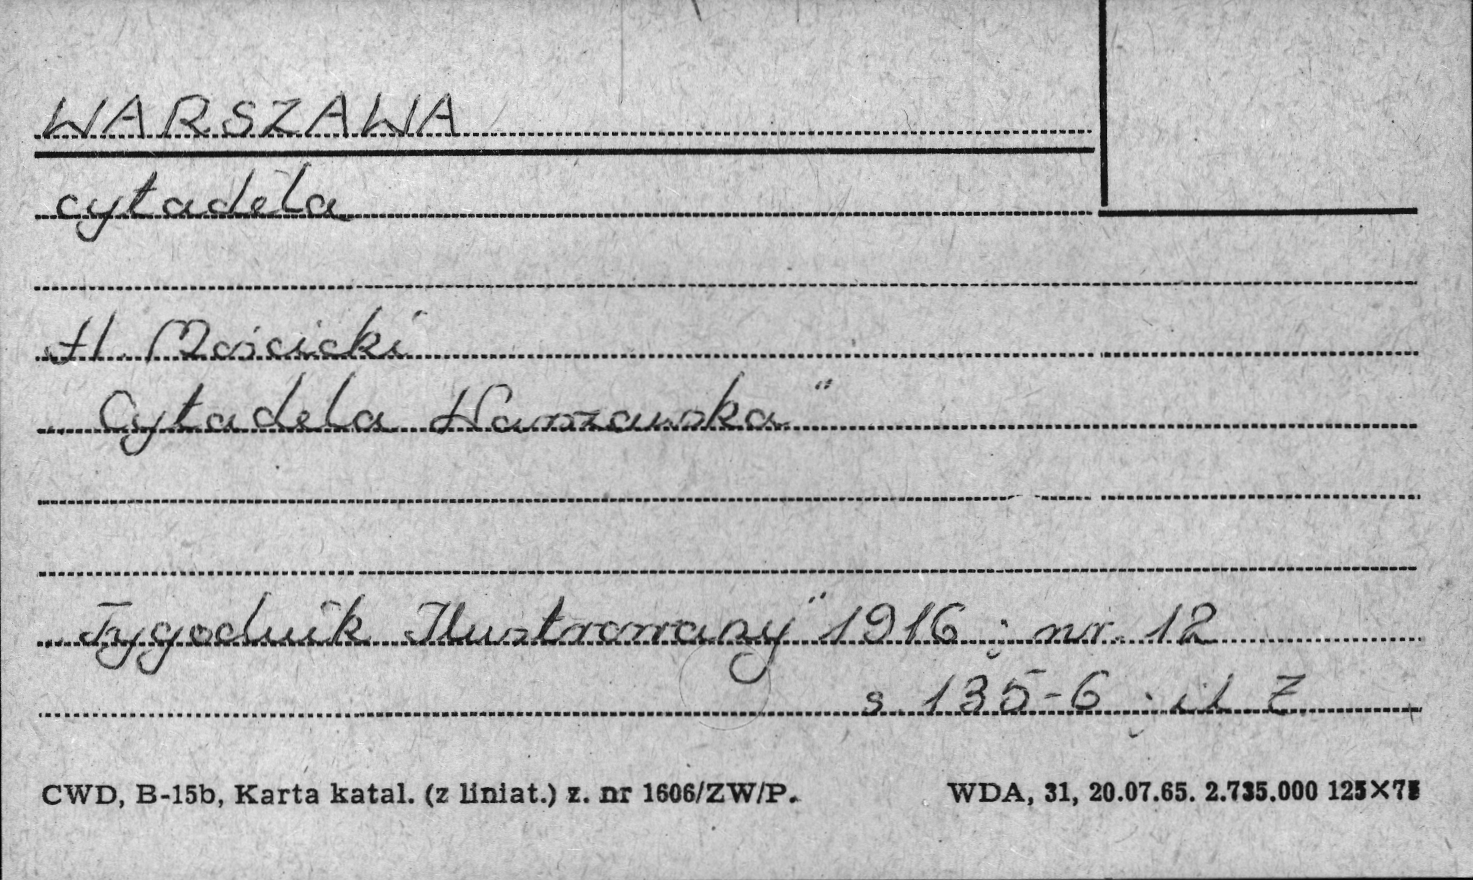 WARSZAWA
cytadela
H. Mościcki
„Cytadela Warszawska"
„Tygodnik Ilustrowany" 1916; nr. 12
s. 135-6; il.
CWD, B-15b, Karta katal. (z liniat.) z. nr 1606/ZW/P.
WDA, 31, 20.07.65. 2.735.000 125×75